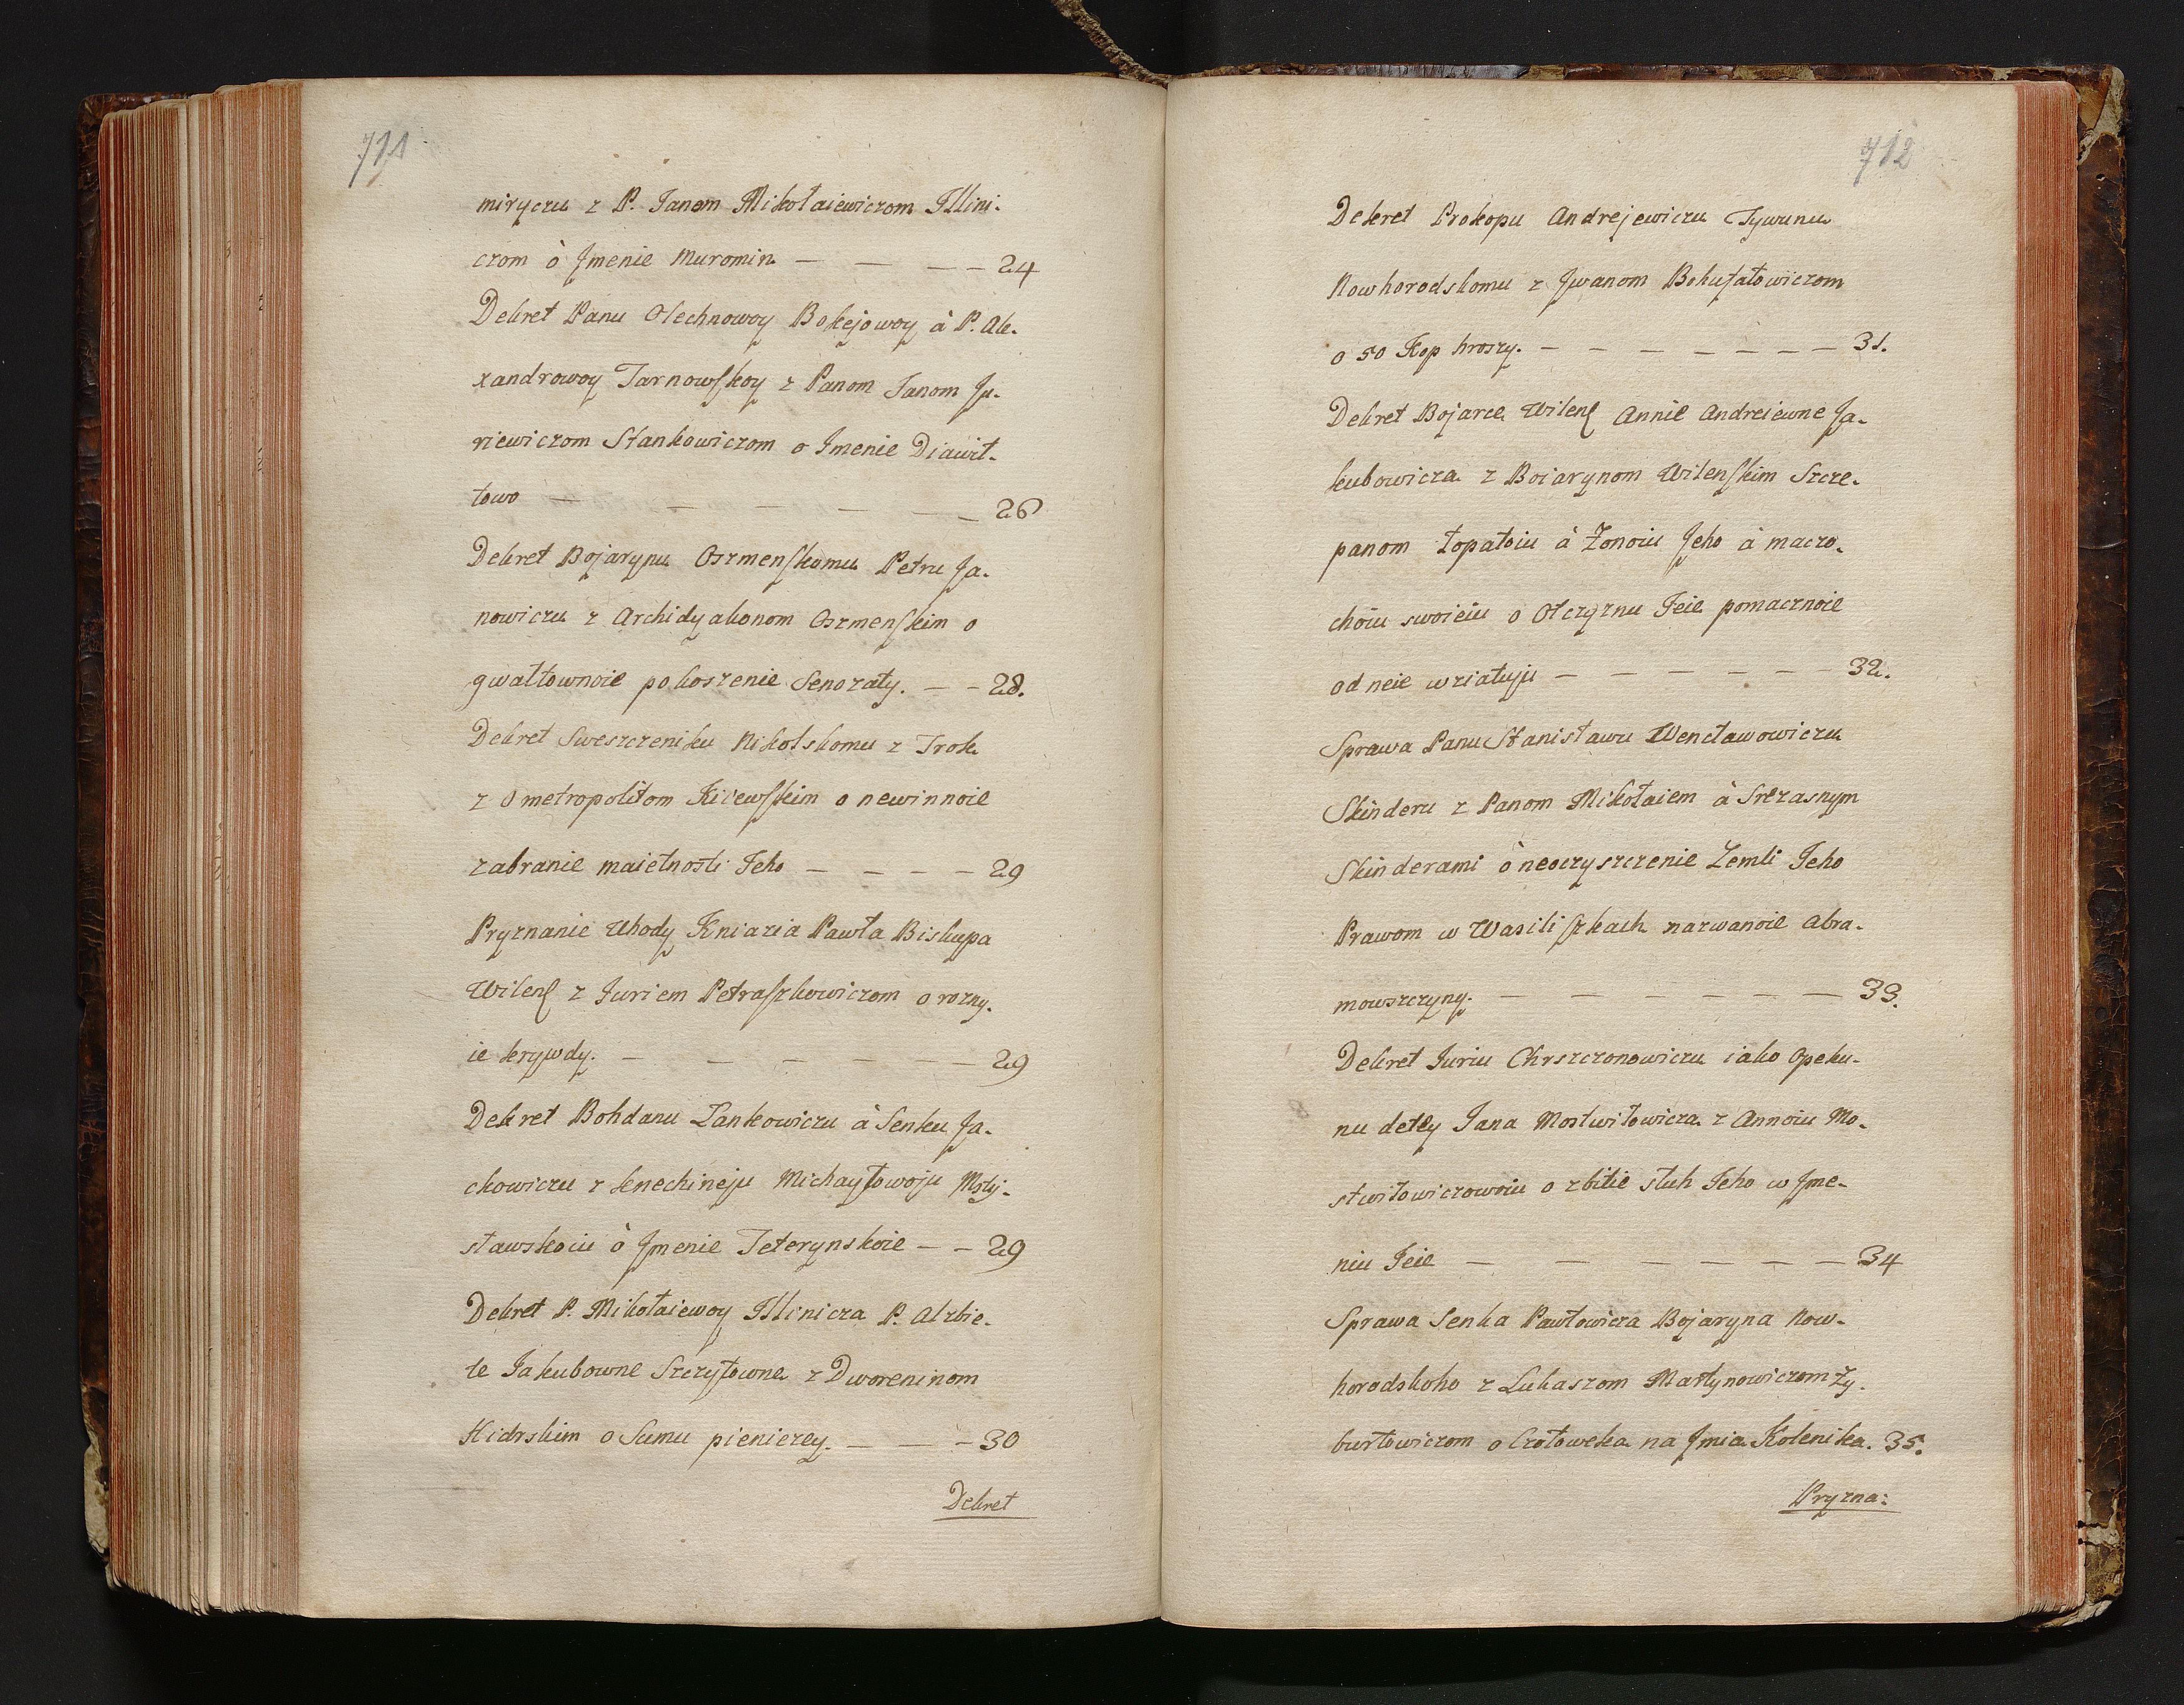 711
miryczu z P. Janom Mikołaiewiczom Illini-
czom ò Jmenie Muromin — — — — 24
Dekret Panu Olechnowoy Bokejowoy à P. Ale-
xandrowoy Tarnowskoy z Panom Janom Ju-
riewiczom Stankowiczom o Imenie Diawił-
towo — — — — — — 26
Dekret Bojarynu Oszmenskomu Petru Ja-
nowiczu z Archidyakonom Oszmenskim o
gwałtownoie pokoszenie Senozaty. — — 28.
Dekret Sweszczeniku Nikolskomu z Trok
z Ometropolitom Kiiewskim o newinnoie
zabranie maietnosti Jeho — — — — 29
Pryznanie Uhody Kniazia Pawła Biskupa
Wilens z Juriem Petraszkowiczom o rozny-
ie krywdy. — — — — — 29
Dekret Bohdanu Zankowiczu à Senku Ja-
ckowiczu z knechineju Michayłowoju Msty-
sławskoiu ò Jmenie Teterynskoie — — 29
Dekret P. Mikołaiewoy Illinicza P. Alzbie-
te Jakubowne Szczytowne z Dworeninom
Hidrskim o Sumu pieniezey. — — — 30
Dekret
712
Dekret Prokopu Andrejewiczu Tywunu
Nowhorodskomu z Jwanom Bohufałowiczom
o 50 Kop hroszy. — — — — — — — 31.
Dekret Bojarce Wilens Annie Andreiewne Ja-
kubowicza z Boiarynom Wilenskim Szcze-
panom Łopatoiu à Żonoiu Jeho à maczo-
choiu swoieiu o Otczyznu Jeie pomacznoie
od neie wziatuju — — — — — — 32.
Sprawa Panu Stanisławu Wencławowiczu
Skinderu z Panom Mikołaiem à Srczasnym
Skinderami ò neoczyszczenie Zemli Jeho
Prawom w Wasiliszkach nazwanoie Abra-
mowszczyny. — — — — — — 33.
Dekret Juriu Chrszczonowiczu iako Opeku-
nu detey Jana Mostwiłowicza z Annoiu Mo-
stwiłowiczowoiu o zbitie słuh Jeho w Jme-
niu Jeie — — — — — — 34
Sprawa Senka Pawłowicza Bojaryna Now-
horodskoho z Lukaszom Martynowiczom Zy-
burtowiczom o Czołoweka na Jmia Kolenika. 35.
Pryzna: